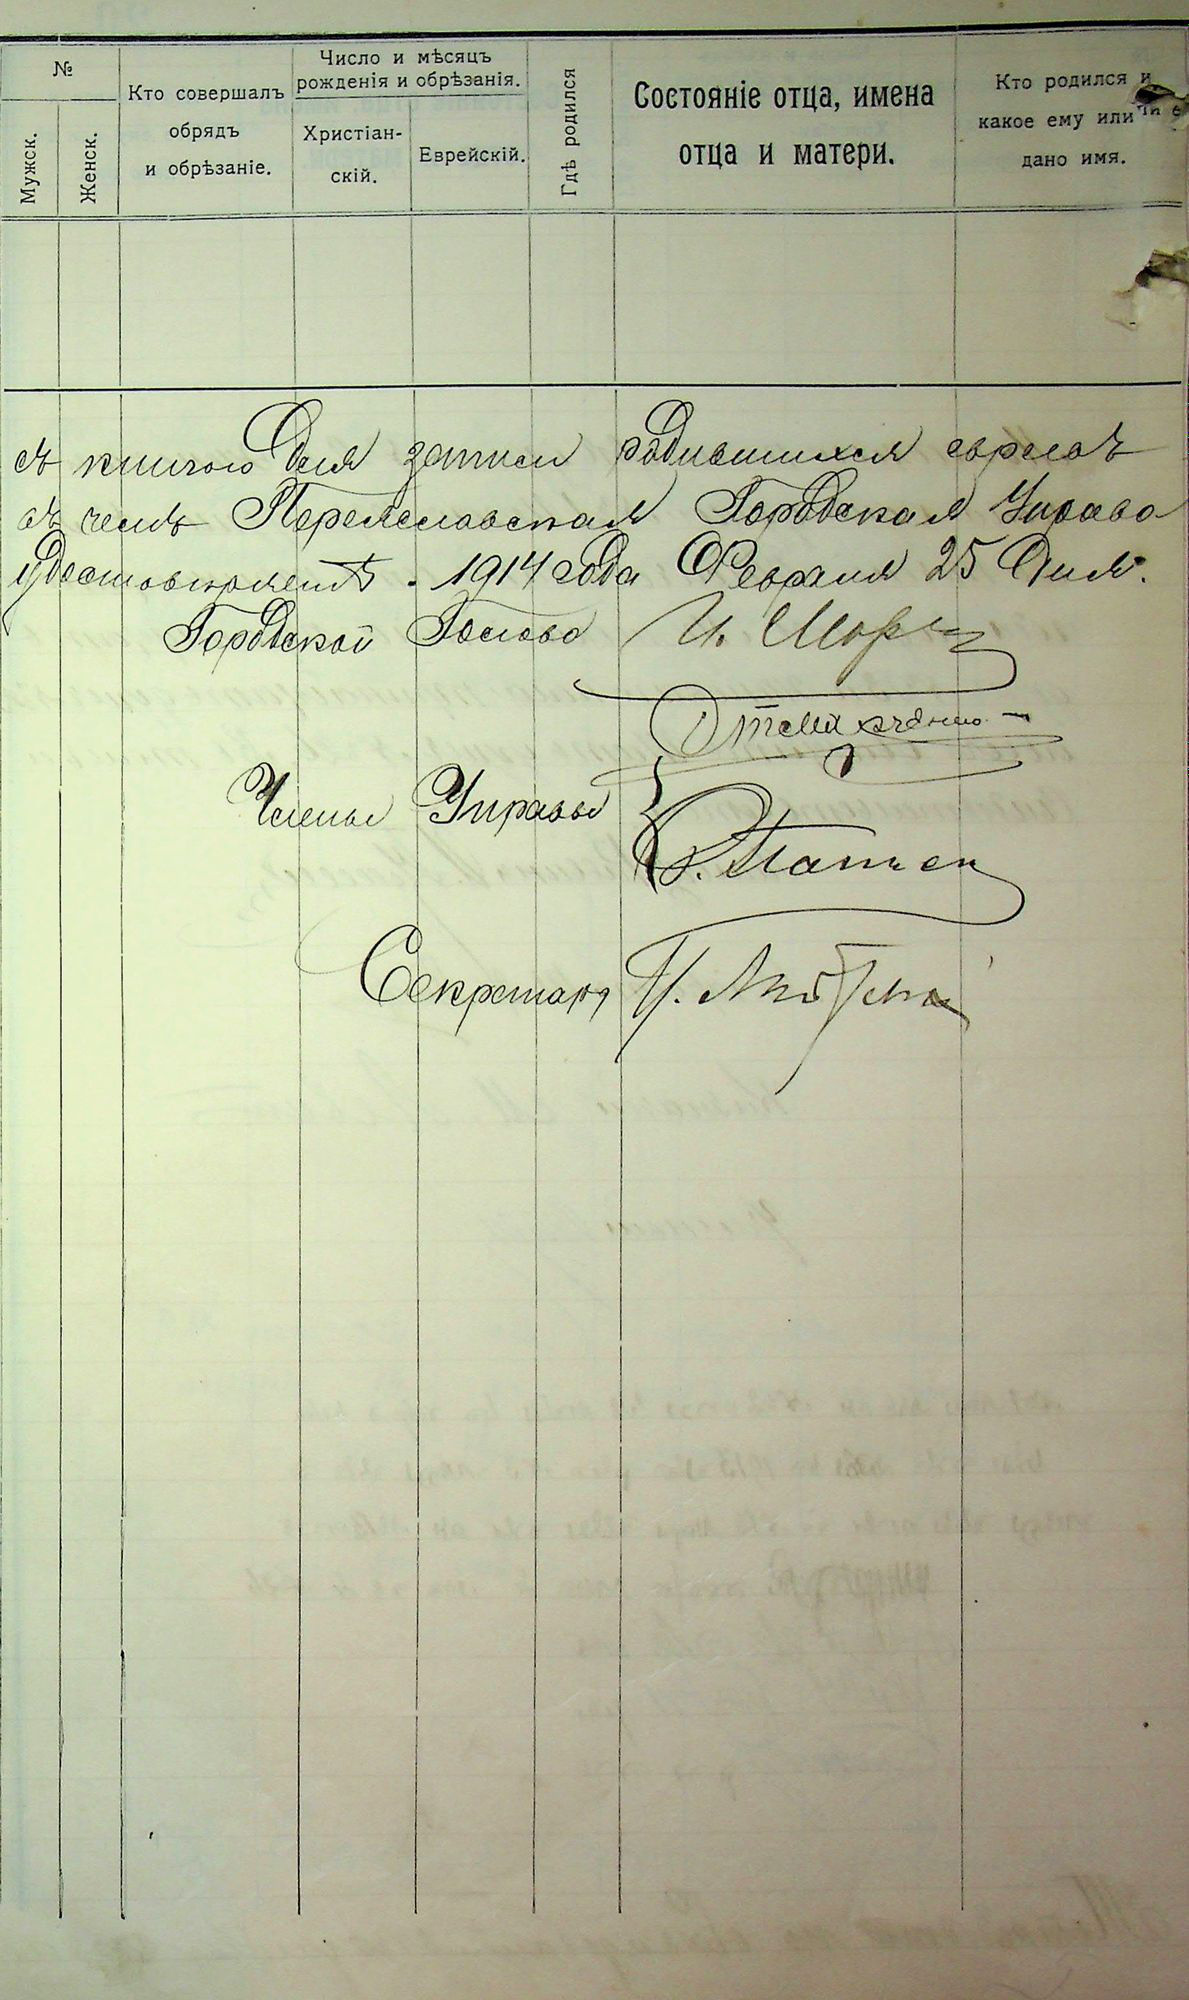 №
Мужск.
Женск.
Кто совершалъ
обрядъ
и обрѣзаніе.
Число и мѣсяцъ
рожденія и обрѣзанія.
Христіан-
скій.
Еврейскій.
Гдѣ родился
Состояніе отца, имена
отца и матери.
Кто родился и
какое ему или
дано имя.
съ книгою для записи родившихся евреевъ
въ чемъ Переяславская Городская Управа
удостовѣряетъ. 1914 года Февраля 25 дня.
Городской Голова И.
Члены Управы
Секретарь